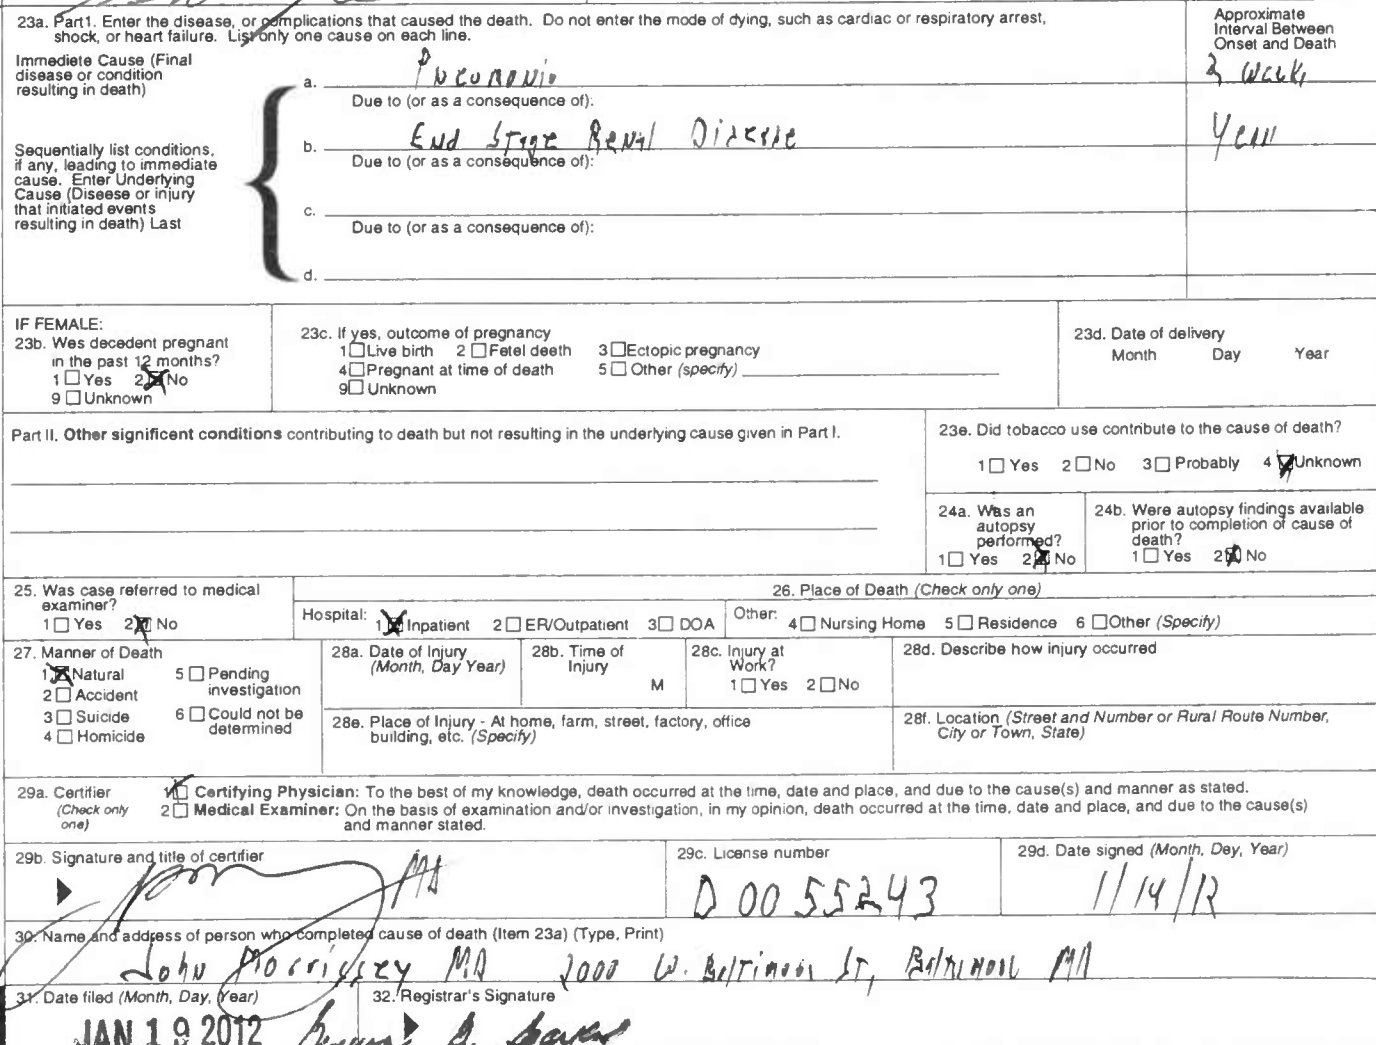 23a. Part1. Enter the disease, or complications that caused the death. Do not enter the mode of dying, such as cardiac or respiratory arrest,
shock, or heart failure. List only one cause on each line.
Approximate
Interval Between
Onset and Death
Immediete Cause (Final
disease or condition
resulting in death)
a. Pneumonia
2 weeks
Due to (or as a consequence of):
b. End Stage Renal Disease
Year
Due to (or as a consequence of):
Sequentially list conditions,
if any, leading to immediate
cause. Enter Underlying
Cause (Diseese or injury
that initiated events
resulting in death) Last
c.
Due to (or as a consequence of):
d.
IF FEMALE:
23b. Wes decedent pregnant
in the past 12 months?
1 Yes 2 No
9 Unknown
23c. If yes, outcome of pregnancy
1 Live birth 2 Fetel deeth 3 Ectopic pregnancy
4 Pregnant at time of death 5 Other (specify)
9 Unknown
23d. Date of delivery
Month Day Year
Part II. Other significent conditions contributing to death but not resulting in the underlying cause given in Part I.
23e. Did tobacco use contribute to the cause of death?
1 Yes 2 No 3 Probably 4 Unknown
24a. Was an
autopsy
performed?
1 Yes 2 No
24b. Were autopsy findings available
prior to completion of cause of
death?
1 Yes 2 No
25. Was case referred to medical
examiner?
1 Yes 2 No
26. Place of Death (Check only one)
Hospital: 1 Inpatient 2 ER/Outpatient 3 DOA Other: 4 Nursing Home 5 Residence 6 Other (Specify)
27. Manner of Death
1 Natural 5 Pending
investigation
2 Accident
3 Suicide 6 Could not be
determined
4 Homicide
28a. Date of Injury
(Month, Day Year)
28b. Time of
Injury
M
28c. Injury at
Work?
1 Yes 2 No
28d. Describe how injury occurred
28e. Place of Injury - At home, farm, street, factory, office
building, etc. (Specify)
28f. Location (Street and Number or Rural Route Number,
City or Town, State)
29a. Certifier
(Check only
one)
1 Certifying Physician: To the best of my knowledge, death occurred at the time, date and place, and due to the cause(s) and manner as stated.
2 Medical Examiner: On the basis of examination and/or investigation, in my opinion, death occurred at the time, date and place, and due to the cause(s)
and manner stated.
29b. Signature and title of certifier
MD
29c. License number
D 00 55243
29d. Date signed (Month, Dey, Year)
1/14/12
30. Name and address of person who completed cause of death (Item 23a) (Type, Print)
John Morrissey MD 2000 W. Baltimore St, Baltimore MD
31. Date filed (Month, Day, Year)
JAN 19 2012
32. Registrar's Signature